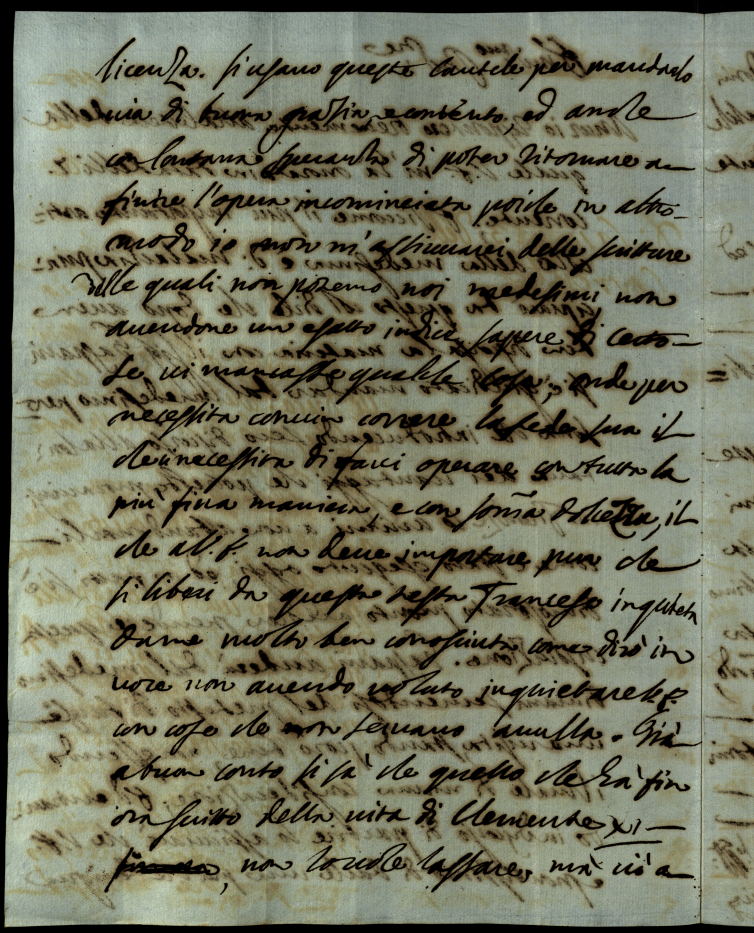 licenza. si usano queste cautele per mandarlo
via di buona grazia, e contento, ed anche
co lontana speranza di poter ritornare a
finire l'opera incominciata poiche in altro
modo io non m'assicurarei delle scritture
delle quali non potemo noi medesimi non
avendone un esatto indice sapere di certo
se vi mancasse qualche cosa, onde per
necessita convien correre la fede sua il
che ci necessita di farci operare con tutta la
piu fina maniera, e con somma dolcezza, il
che a V. S. non deve importare pur che
si liberi da questa testa Francese inquieta
da me molto ben conosciuta come dirò in
voce non avendo voluto inquietarele
con cose che non servano a nulla. Già
a buon conto si sà che quello che hà fin
ora scritto della vita di Clemente XI
, non lo vuole lassare, mà vi a